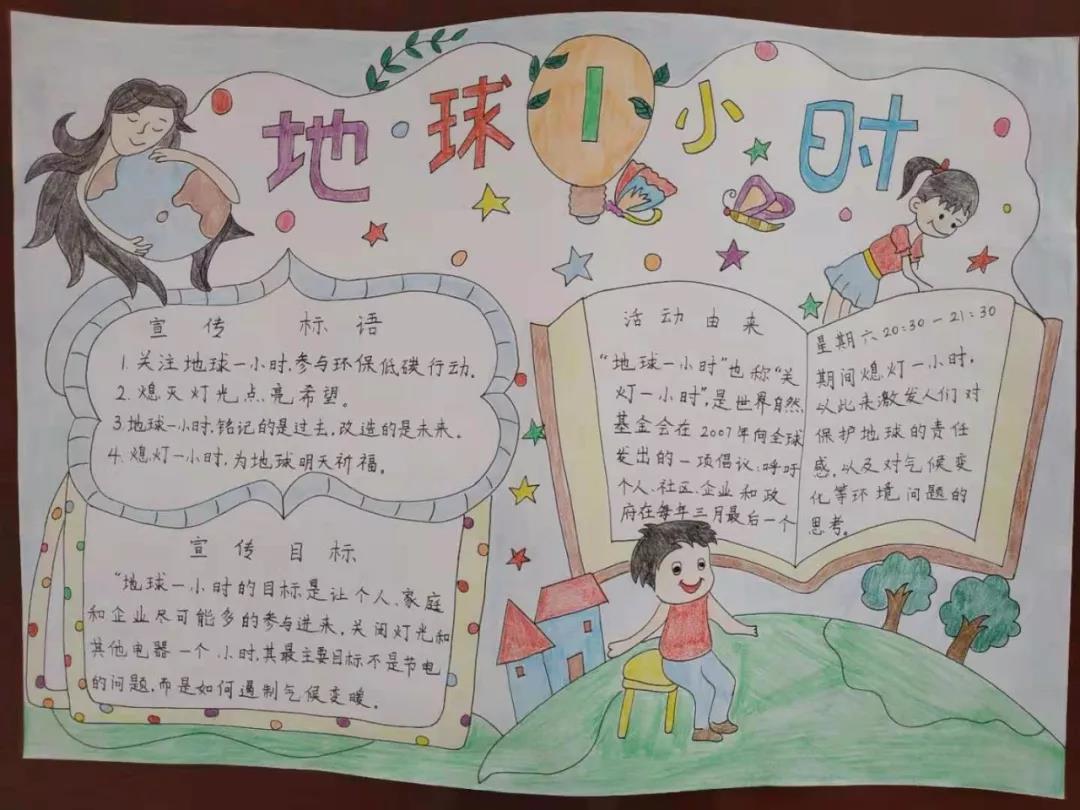 地球1小时
宣传 标语
1.关注地球一小时,参与环保低碳行动.
2.熄灭灯光点亮希望。
3.地球一小时,铭记的是过去,改造的是未来。
4.熄灯一小时,为地球明天祈福。
宣传目标
“地球一小时的目标是让个人、家庭
和企业尽可能多的参与进来,关闭灯光和
其他电器一个小时,其最主要目标不是节电
的问题,而是如何遏制气候变暖。
活动由来
“地球一小时”也称“关
灯一小时”,是世界自然
基金会在2007年向全球
发出的一项倡议:呼吁
个人、社区、企业和政
府在每年三月最后一个
星期六20:30-21:30
期间熄灯一小时,
以此来激发人们对
保护地球的责任
感,以及对气候变
化等环境问题的
思考。